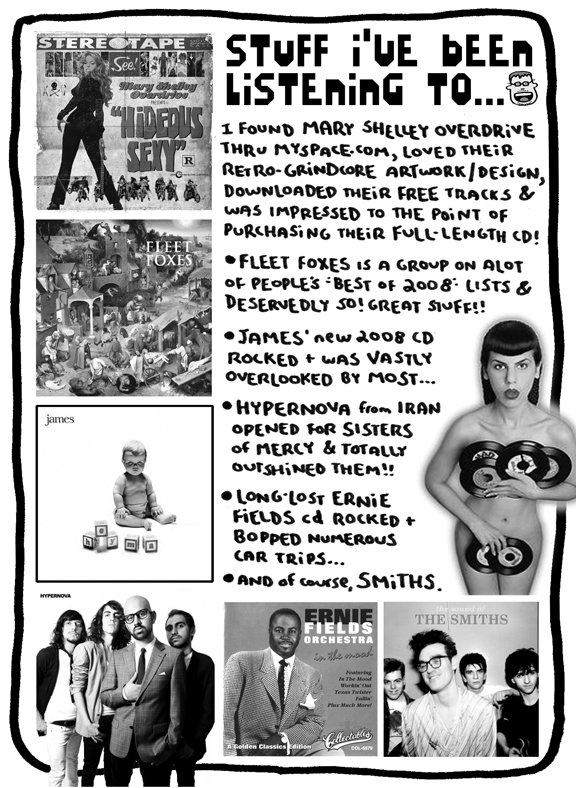 STUFF i'VE BEEN
LiSTENiNG TO...
STEREOTAPE
See!
Mary Shelley
Overdrive
"HIDEOUS
SEXY"
R
I FOUND MARY SHELLEY OVERDRIVE
THRU MYSPACE.COM, LOVED THEIR
RETRO-GRINDCORE ARTWORK/DESIGN,
DOWNLOADED THEIR FREE TRACKS &
WAS IMPRESSED TO THE POINT OF
PURCHASING THEIR FULL-LENGTH CD!
FLEET
FOXES
• FLEET FOXES IS A GROUP ON ALOT
OF PEOPLE'S "BEST OF 2008" LISTS &
DESERVEDLY SO! GREAT STUFF!!
• JAMES' new 2008 CD
ROCKED + WAS VASTLY
OVERLOOKED BY MOST...
james
h e y m a
• HYPERNOVA from IRAN
OPENED FOR SISTERS
of MERCY & TOTALLY
OUTSHINED THEM!!
• LONG-LOST ERNIE
FiELDS cd ROCKED +
BOPPED NUMEROUS
CAR TRIPS...
• AND of course, SMiTHS.
HYPERNOVA
ERNIE
FIELDS
ORCHESTRA
in the mood
Featuring
In The Mood
Workin' Out
Texas Twister
Fallin'
Plus Much More!
A Golden Classics Edition
Collectables
COL-5879
the sound of
THE SMITHS